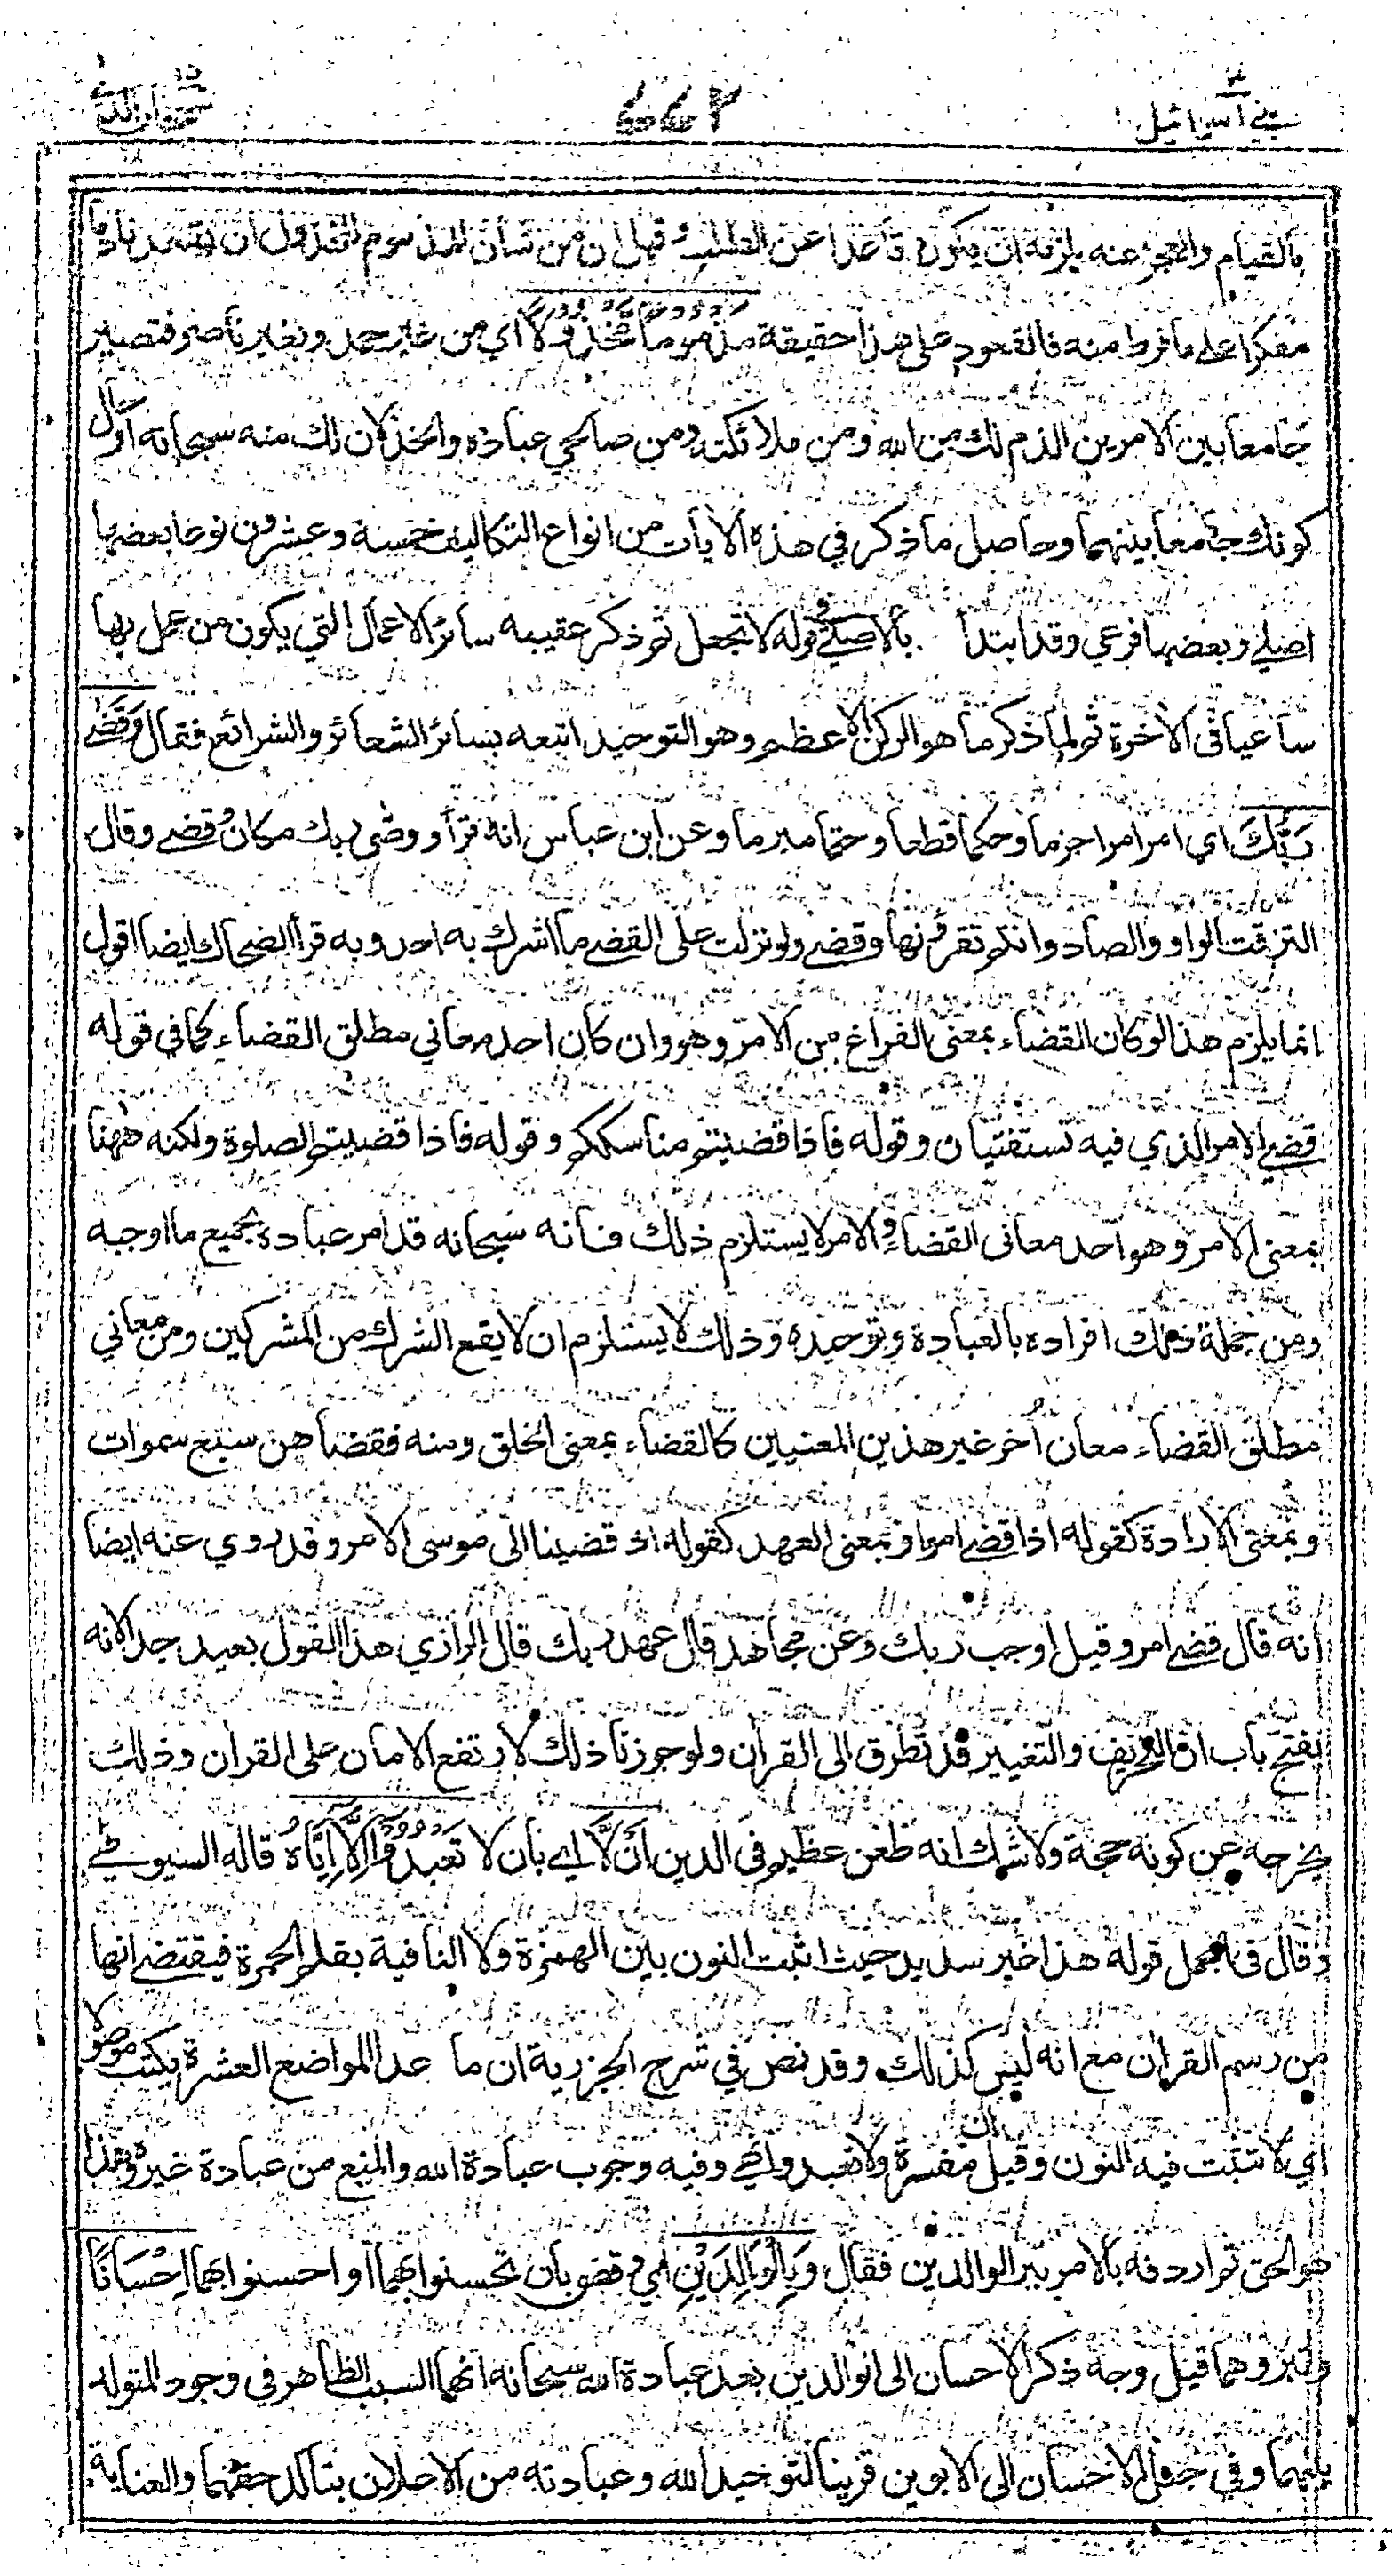 بني اسرائيل
٧٧٢
سبحان الذي
بالقيام والعجز عنه يلزمه ان يكون قاعدا عن الطلب وقيل ان من شأن المذموم المخذول ان يقعد نادما
مفكرا على ما فرط منه فالقعود على هذا حقيقة مذموما مخذولا اي من غير حمد وبغير ناصر فتصير
جامعا بين الامرين الذم لك من الله ومن ملائكته ومن صالحي عباده والخذلان لك منه سبحانه او حال
كونك جامعا بينهما وحاصل ما ذكر في هذه الايات من انواع التكاليف خمسة وعشرون نوعا بعضها
اصلي وبعضها فرعي وقد ابتدأ بالاصلي في قوله لا تجعل ثم ذكر عقيبه سائر الاعمال التي يكون من عمل بها
ساعيا في الاخرة ثم لما ذكر ما هو الركن الاعظم وهو التوحيد اتبعه بسائر الشعائر والشرائع فقال وَقَضٰى
رَبُّكَ اي امر امرا جزما وحكما قطعا وحتما مبرما وعن ابن عباس انه قرأ ووصّى ربك مكان وقضى وقال
التزقت الواو والصاد وانتم تقرؤنها وقضى ولو نزلت على القضى ما اشرك به احد وبه قرأ الضحاك ايضا اقول
انما يلزم هذا لو كان القضاء بمعنى الفراغ من الامر وهو وان كان احد معاني مطلق القضاء كما في قوله
قضي الامر الذي فيه تستفتيان وقوله فاذا قضيتم مناسككم وقوله فاذا قضيتم الصلوة ولكنه ههنا
بمعنى الامر وهو احد معاني القضاء والامر لا يستلزم ذلك فانه سبحانه قد امر عباده بجميع ما اوجبه
ومن جملة ذلك افراده بالعبادة وتوحيده وذلك لا يستلزم ان لا يقع الشرك من المشركين ومن معاني
مطلق القضاء معان اُخر غير هذين المعنيين كالقضاء بمعنى الخلق ومنه فقضاهن سبع سموات
وبمعنى الارادة كقوله اذا قضى امرا وبمعنى العهد كقوله اذ قضينا الى موسى الامر وقد روي عنه ايضا
انه قال قضى امر وقيل اوجب ربك وعن مجاهد قال عهد ربك قال الرازي هذا القول بعيد جدا لانه
يفتح باب ان التحريف والتغيير قد تطرق الى القران ولو جوزنا ذلك لارتفع الامان على القران وذلك
يخرجه عن كونه حجة ولا شك انه طعن عظيم في الدين اَنْ لَّا اي بان لا تَعْبُدُوْٓا اِلَّآ اِيَّاهُ قاله السيوطي
وقال في الجمل قوله هذا غير سديد حيث اثبت النون بين الهمزة ولا النافية بقلم الحمرة فيقتضي انها
من رسم القران مع انه ليس كذلك وقد نص في شرح الجزرية ان ما عدا المواضع العشرة يكتب موصولا
اي لا تثبت فيه النون وقيل ان مفسرة ولا تعبدوا نهي وفيه وجوب عبادة الله والمنع من عبادة غيره وهذا
هو الحق ثم اردفه بالامر ببر الوالدين فقال وَبِالْوَالِدَيْنِ اي وقضى بان تحسنوا بهما او احسنوا بهما اِحْسَانًا
وتبروهما قيل وجه ذكر الاحسان الى الوالدين بعد عبادة الله سبحانه انهما السبب الظاهر في وجود المتولد
بينهما وفي جعل الاحسان الى الابوين قرينا لتوحيد الله وعبادته من الاعلان بتأكد حقهما والعناية